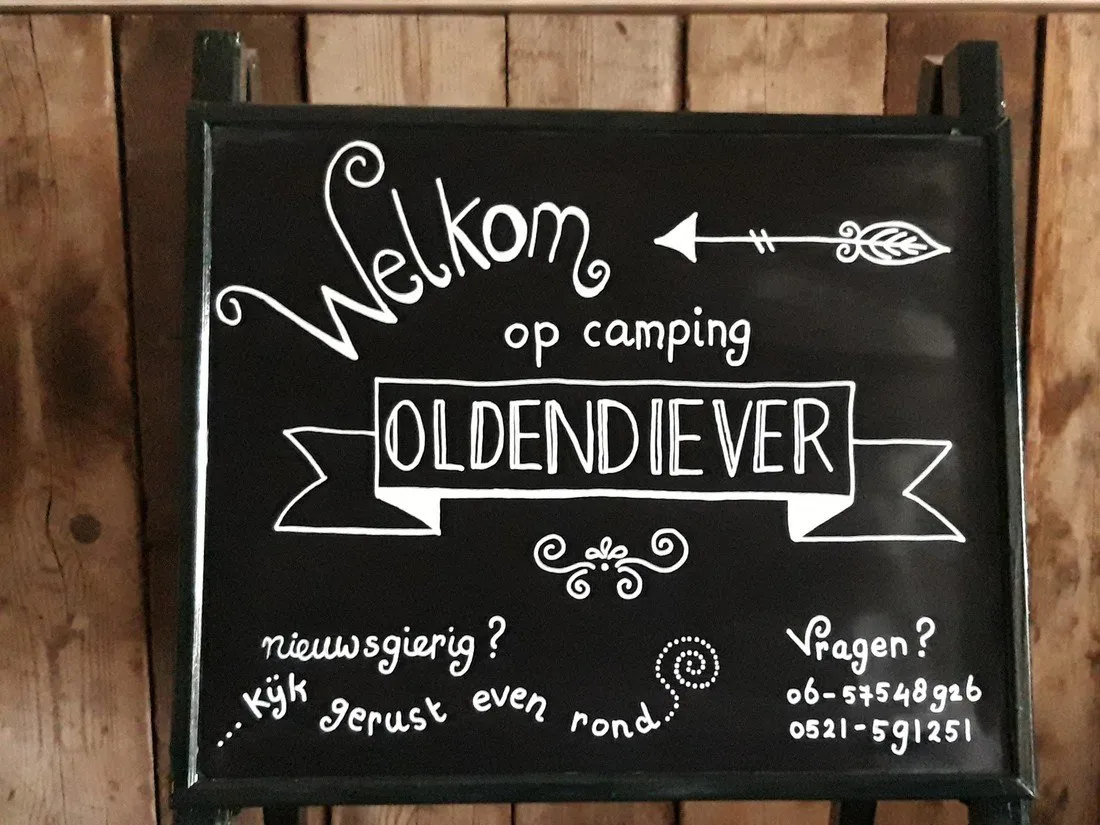 Welkom
op camping
OLDENDIEVER
nieuwsgierig?
....kijk gerust even rond
Vragen?
06-57548926
0521-591251